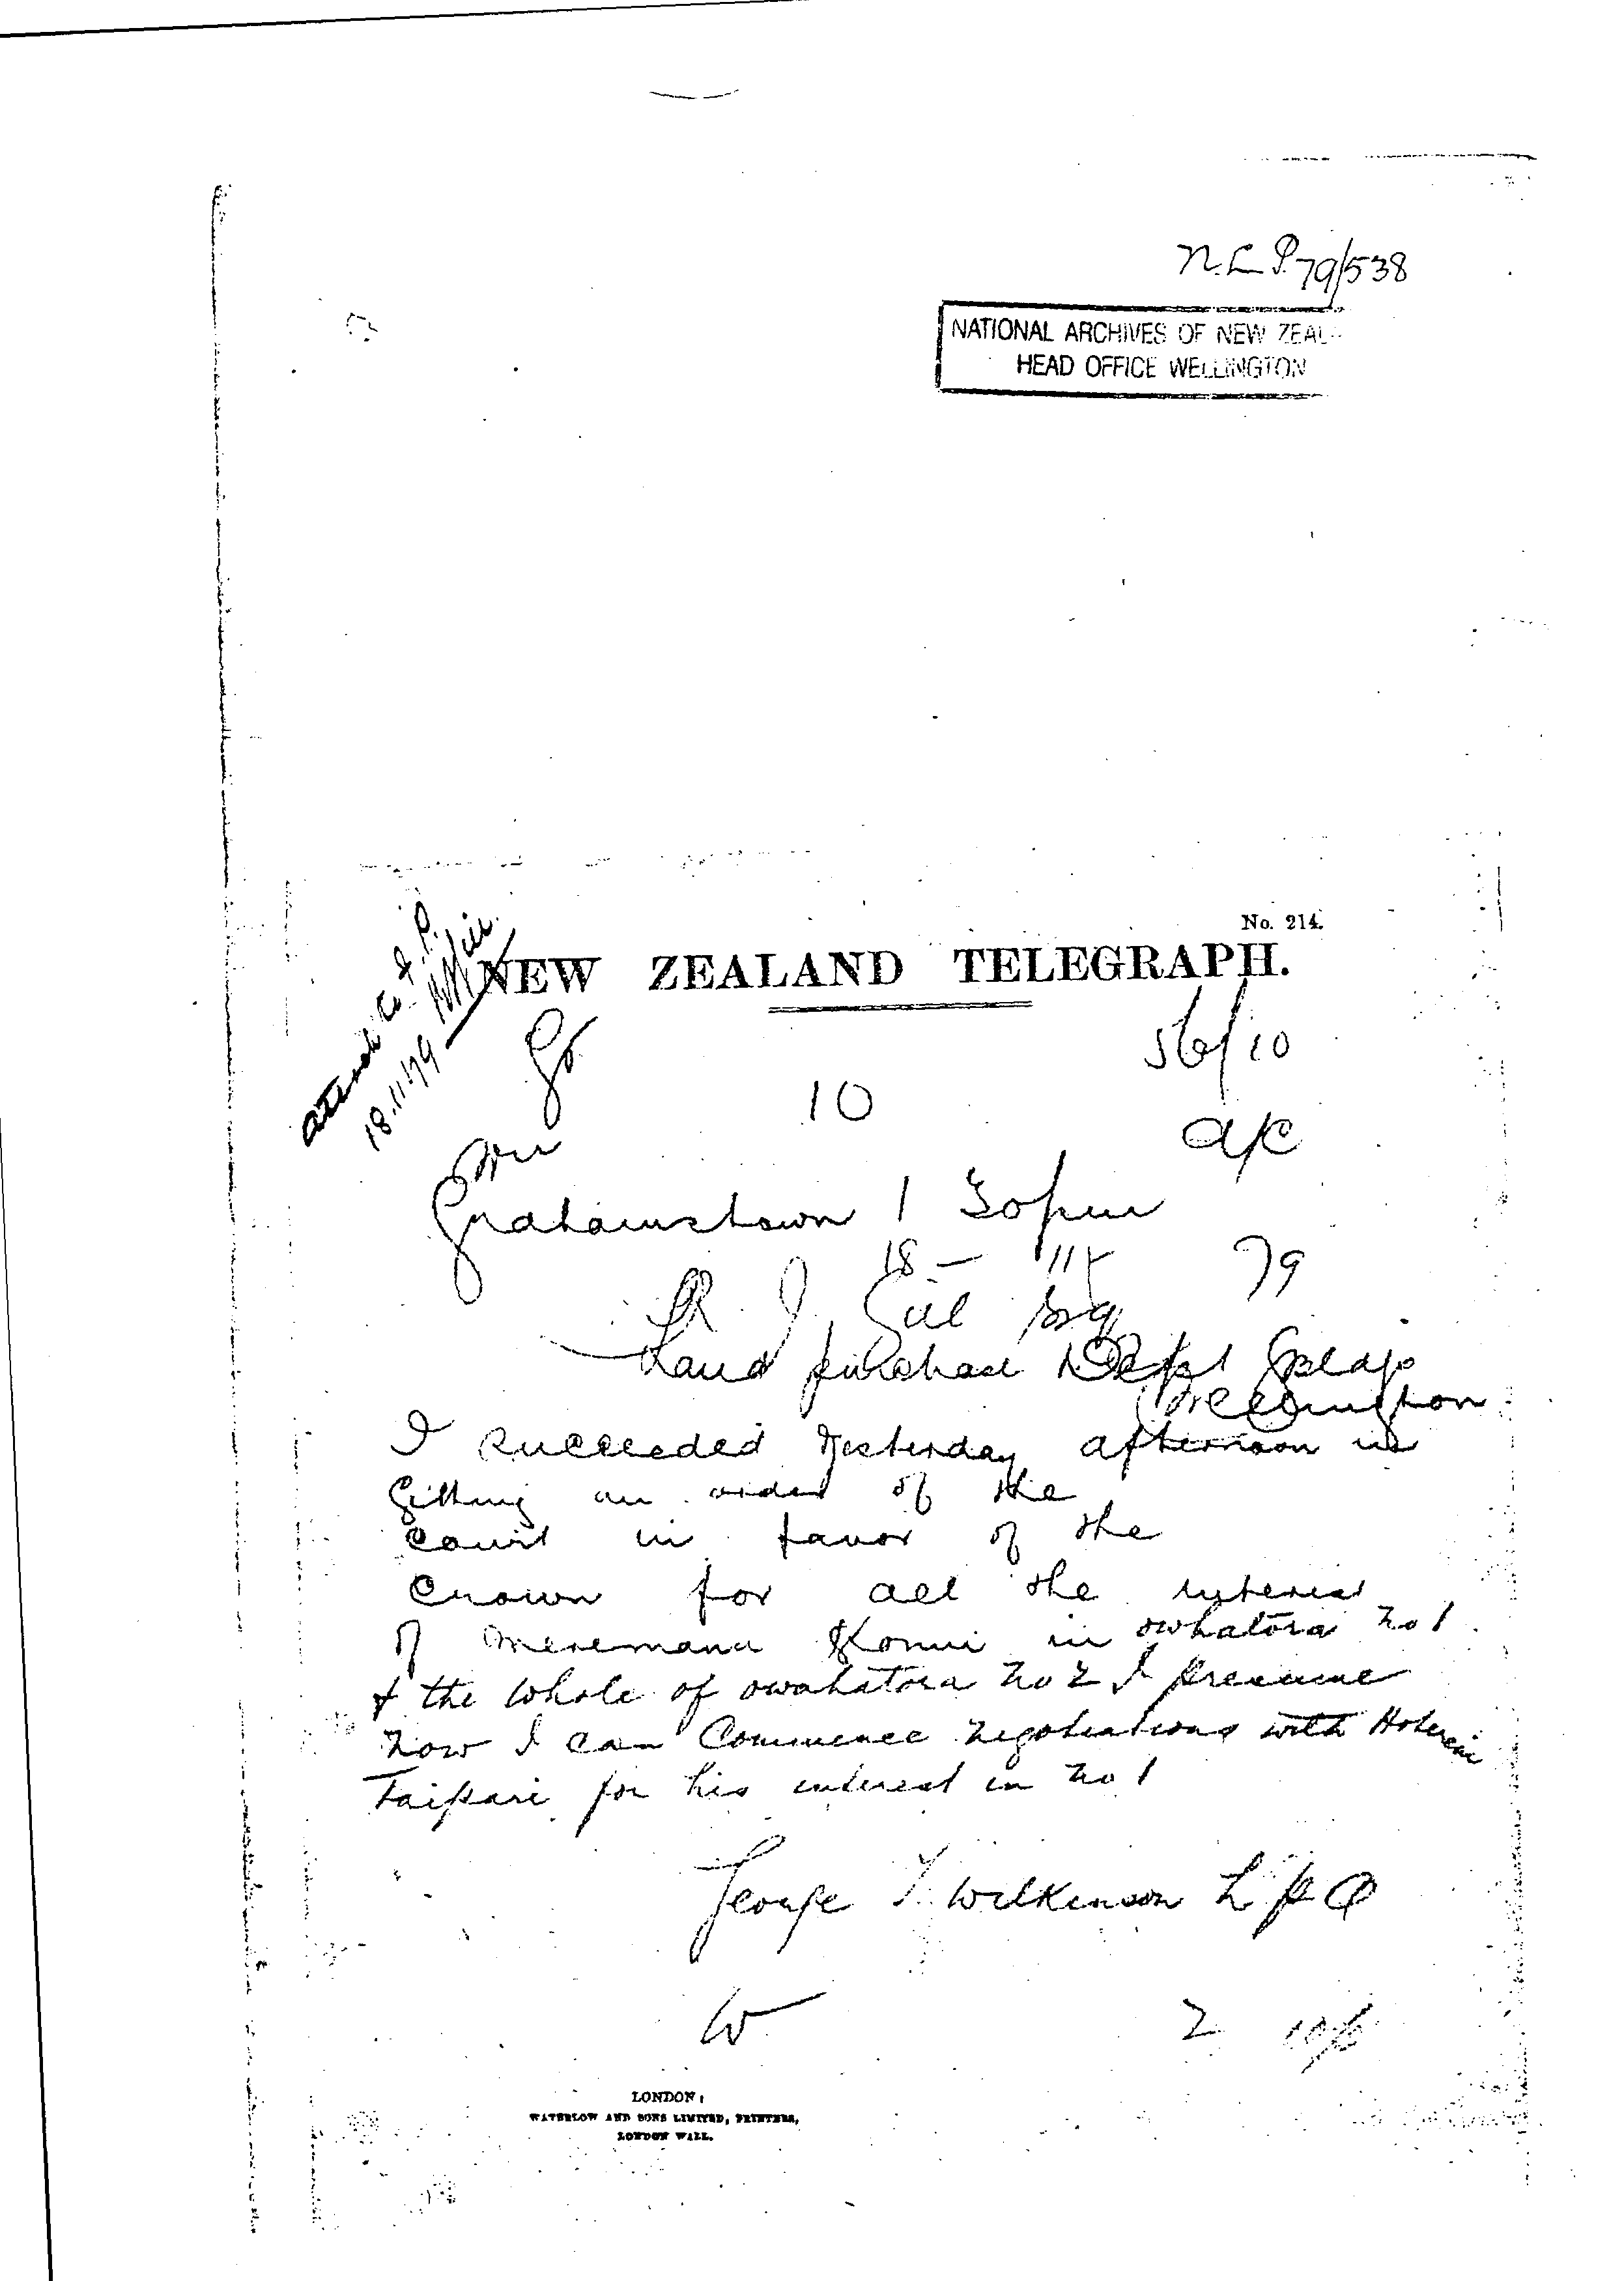 N.L.P. 79/538
NATIONAL ARCHIVES OF NEW ZEAL
HEAD OFFICE WELLINGTON
No. 214.
NEW ZEALAND TELEGRAPH.
18.11.79
56/10
10
Grahamstown 1
18 - 11 79
R. J. Gill Esq
Land purchase Dept
Wellington
I succeeded Yesterday afternoon in
getting an order of the
Court in favor of the
Crown for all the interest
of Meremana Konui in owhatora No 1
& the whole of owahatora No 2 I presume
now I can Commence negotiations with Hoterene
Taipari for his interest in No 1
George T. Wilkinson L P O
W 2
LONDON:
WATERLOW AND SONS LIMITED, PRINTERS,
LONDON WALL.